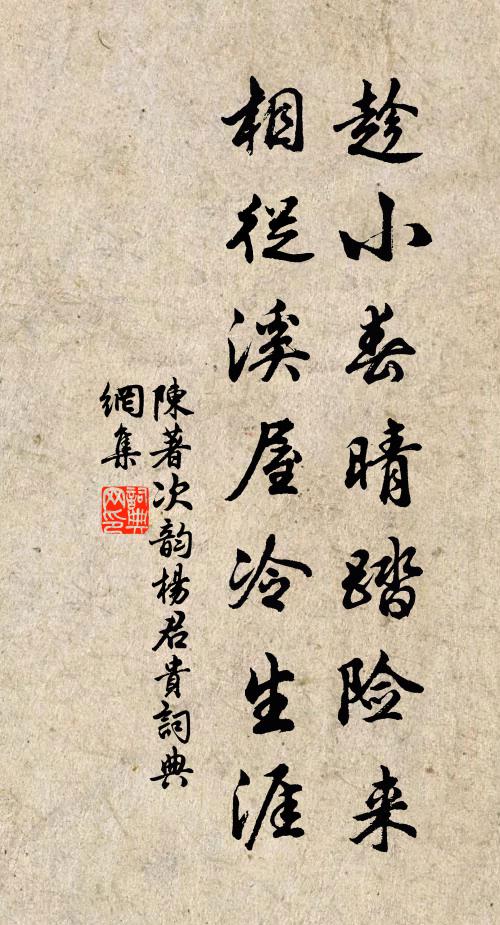 趁小春晴踏险来
相從溪屋冷生涯
陳著次韵楊君貴詞典
網集
詞典网印